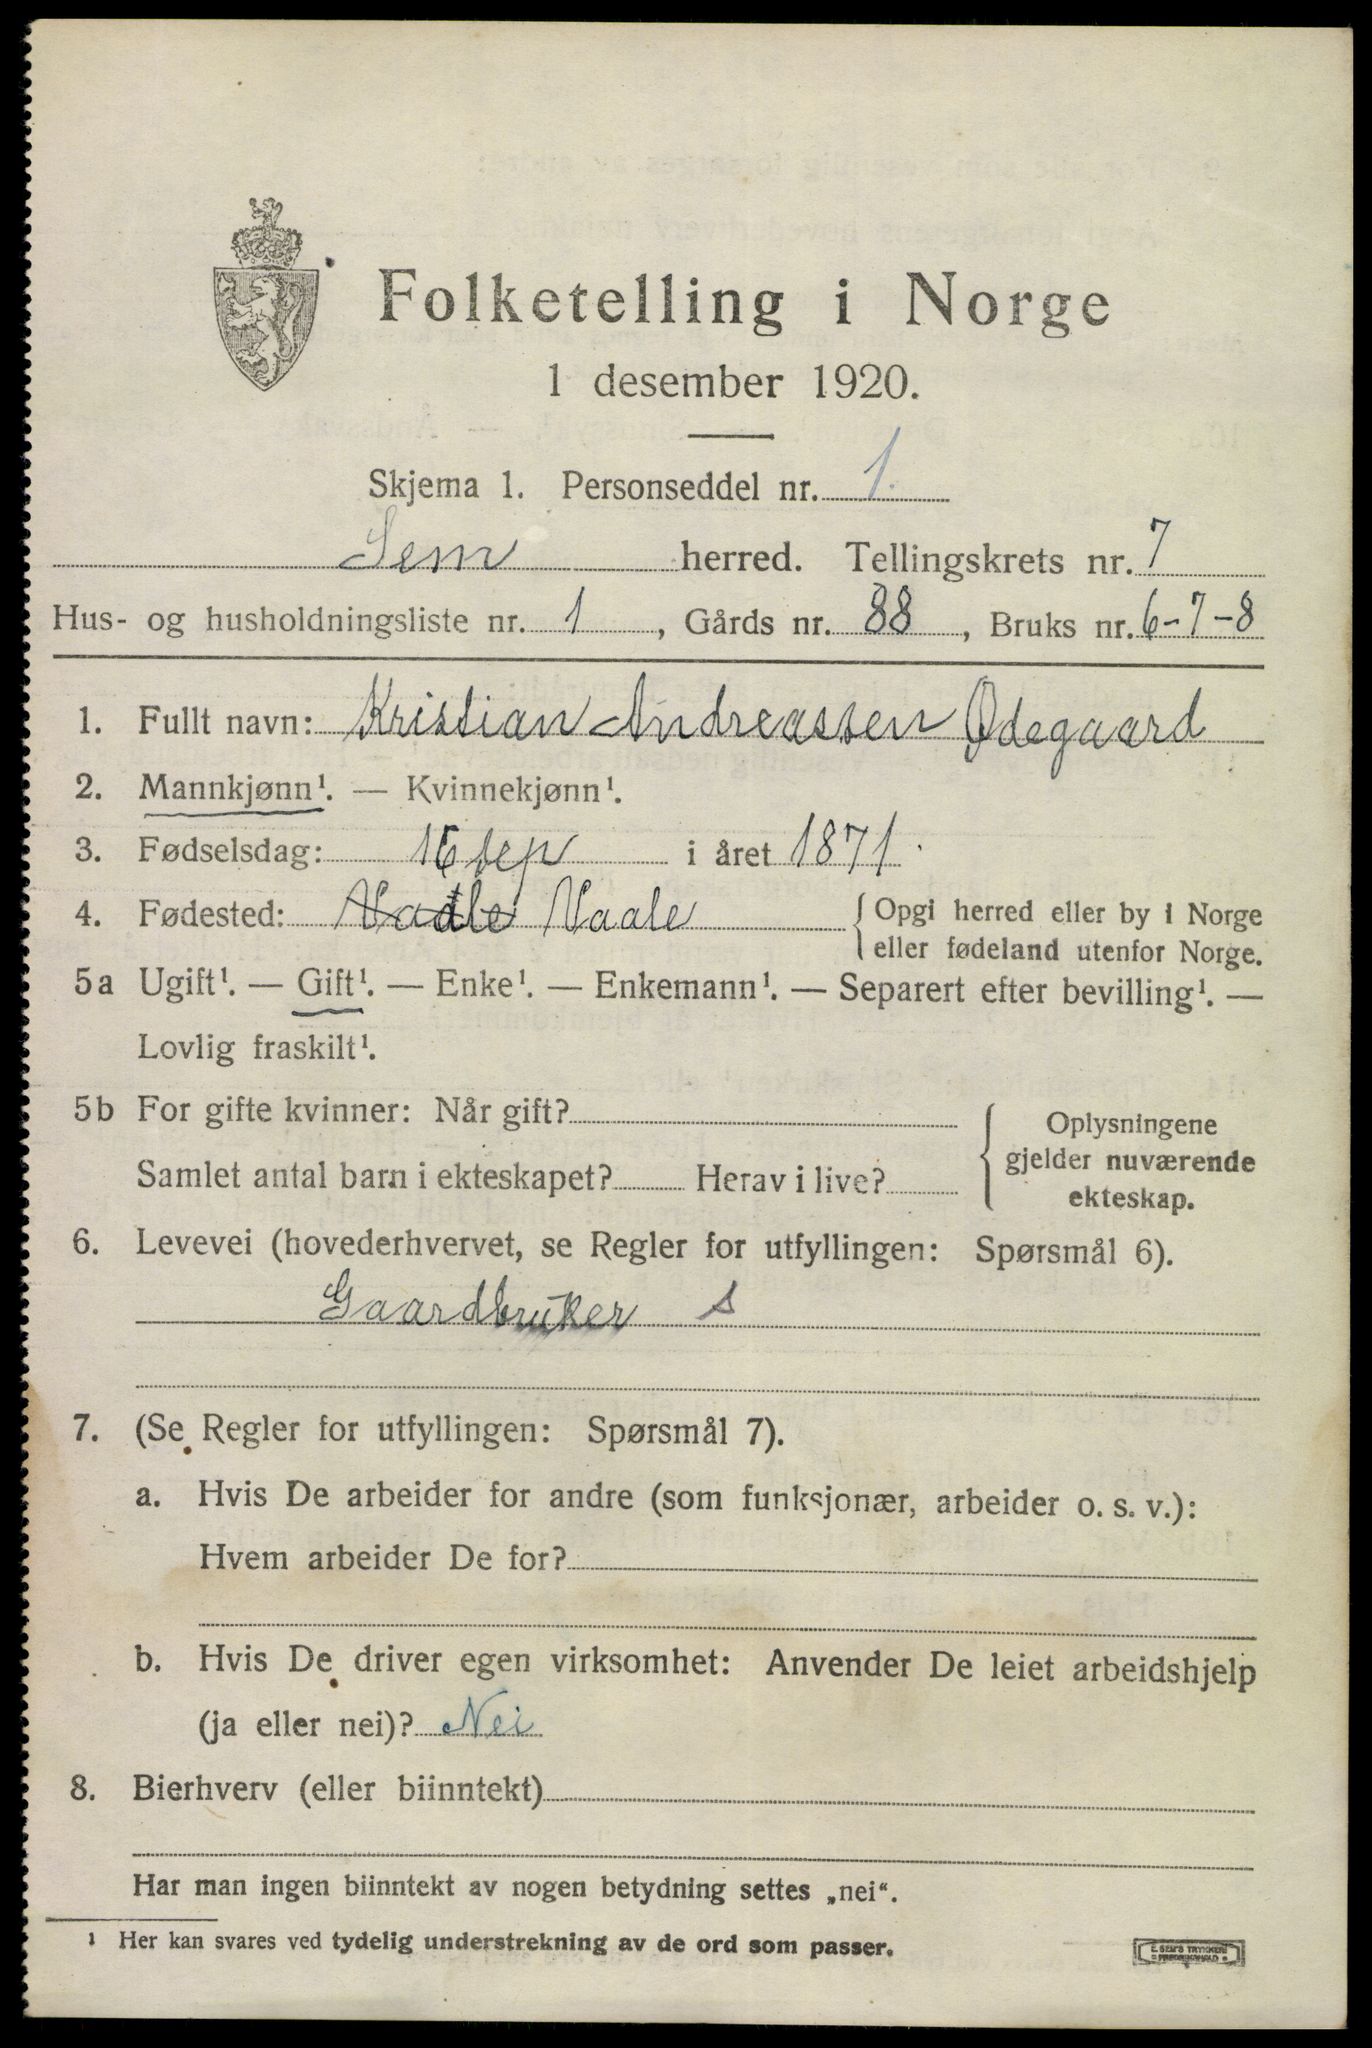 Folketelling i Norge
1 desember 1920.
Skjema 1. Personseddel nr. 1.
Sem herred. Tellingskrets nr. 7
Hus- og husholdningsliste nr. 1, Gårds nr. 88, Bruks nr. 6-7-8
1. Fullt navn: Kristian Andreassen Ødegaard
2. Mannkjønn¹. — Kvinnekjønn¹.
3. Fødselsdag: 16 sep i året 1871.
4. Fødested: Vaale { Opgi herred eller by i Norge
eller fødeland utenfor Norge.
5a Ugift¹. — Gift¹. — Enke¹. — Enkemann¹. — Separert efter bevilling¹. —
Lovlig fraskilt¹.
5b For gifte kvinner: Når gift?
Samlet antal barn i ekteskapet? Herav i live?
Oplysningene
gjelder nuværende
ekteskap.
6. Levevei (hovederhvervet, se Regler for utfyllingen: Spørsmål 6).
Gaardbruker s
7. (Se Regler for utfyllingen: Spørsmål 7).
a. Hvis De arbeider for andre (som funksjonær, arbeider o. s. v.):
Hvem arbeider De for?
b. Hvis De driver egen virksomhet: Anvender De leiet arbeidshjelp
(ja eller nei)? Nei
8. Bierhverv (eller biinntekt)
Har man ingen biinntekt av nogen betydning settes „nei“.
¹ Her kan svares ved tydelig understrekning av de ord som passer.
E. SEM'S TRYKKERI
FREDRIKSHALD